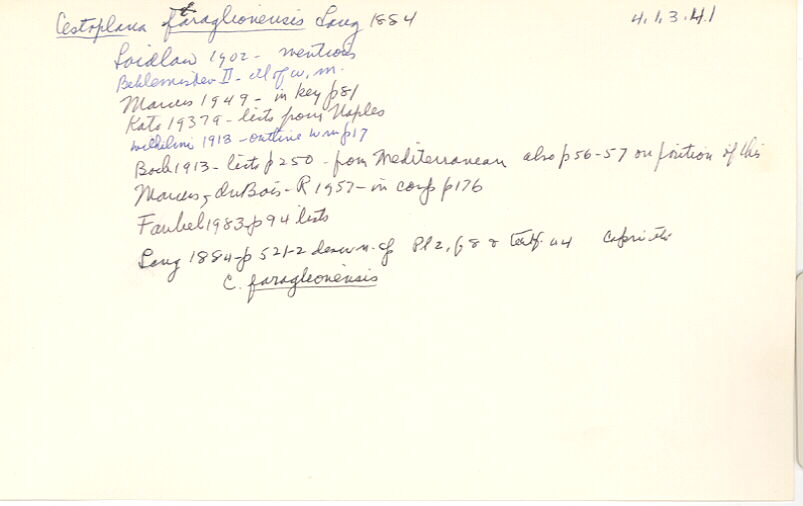 Cestoplana faraglionensis Lang 1884 4.1.3.4.1
Laidlaw 1902 - mentions
Beklemishev II - of w, m.
Marcus 1949 - in key p81
Kato 1937a - lists from Naples
Wilhelmi 1913 - outline w m p17
Bock 1913 - lists p250 - from Mediterranean also p56-57 on position of this
Marcus, duBois-R 1957 - in comp p176
Faubel 1983 p94 lists
Lang 1884 - p 521-2 descr n. sp Pl 2, f 8 & textf. 44 Capri
C. faraglionensis